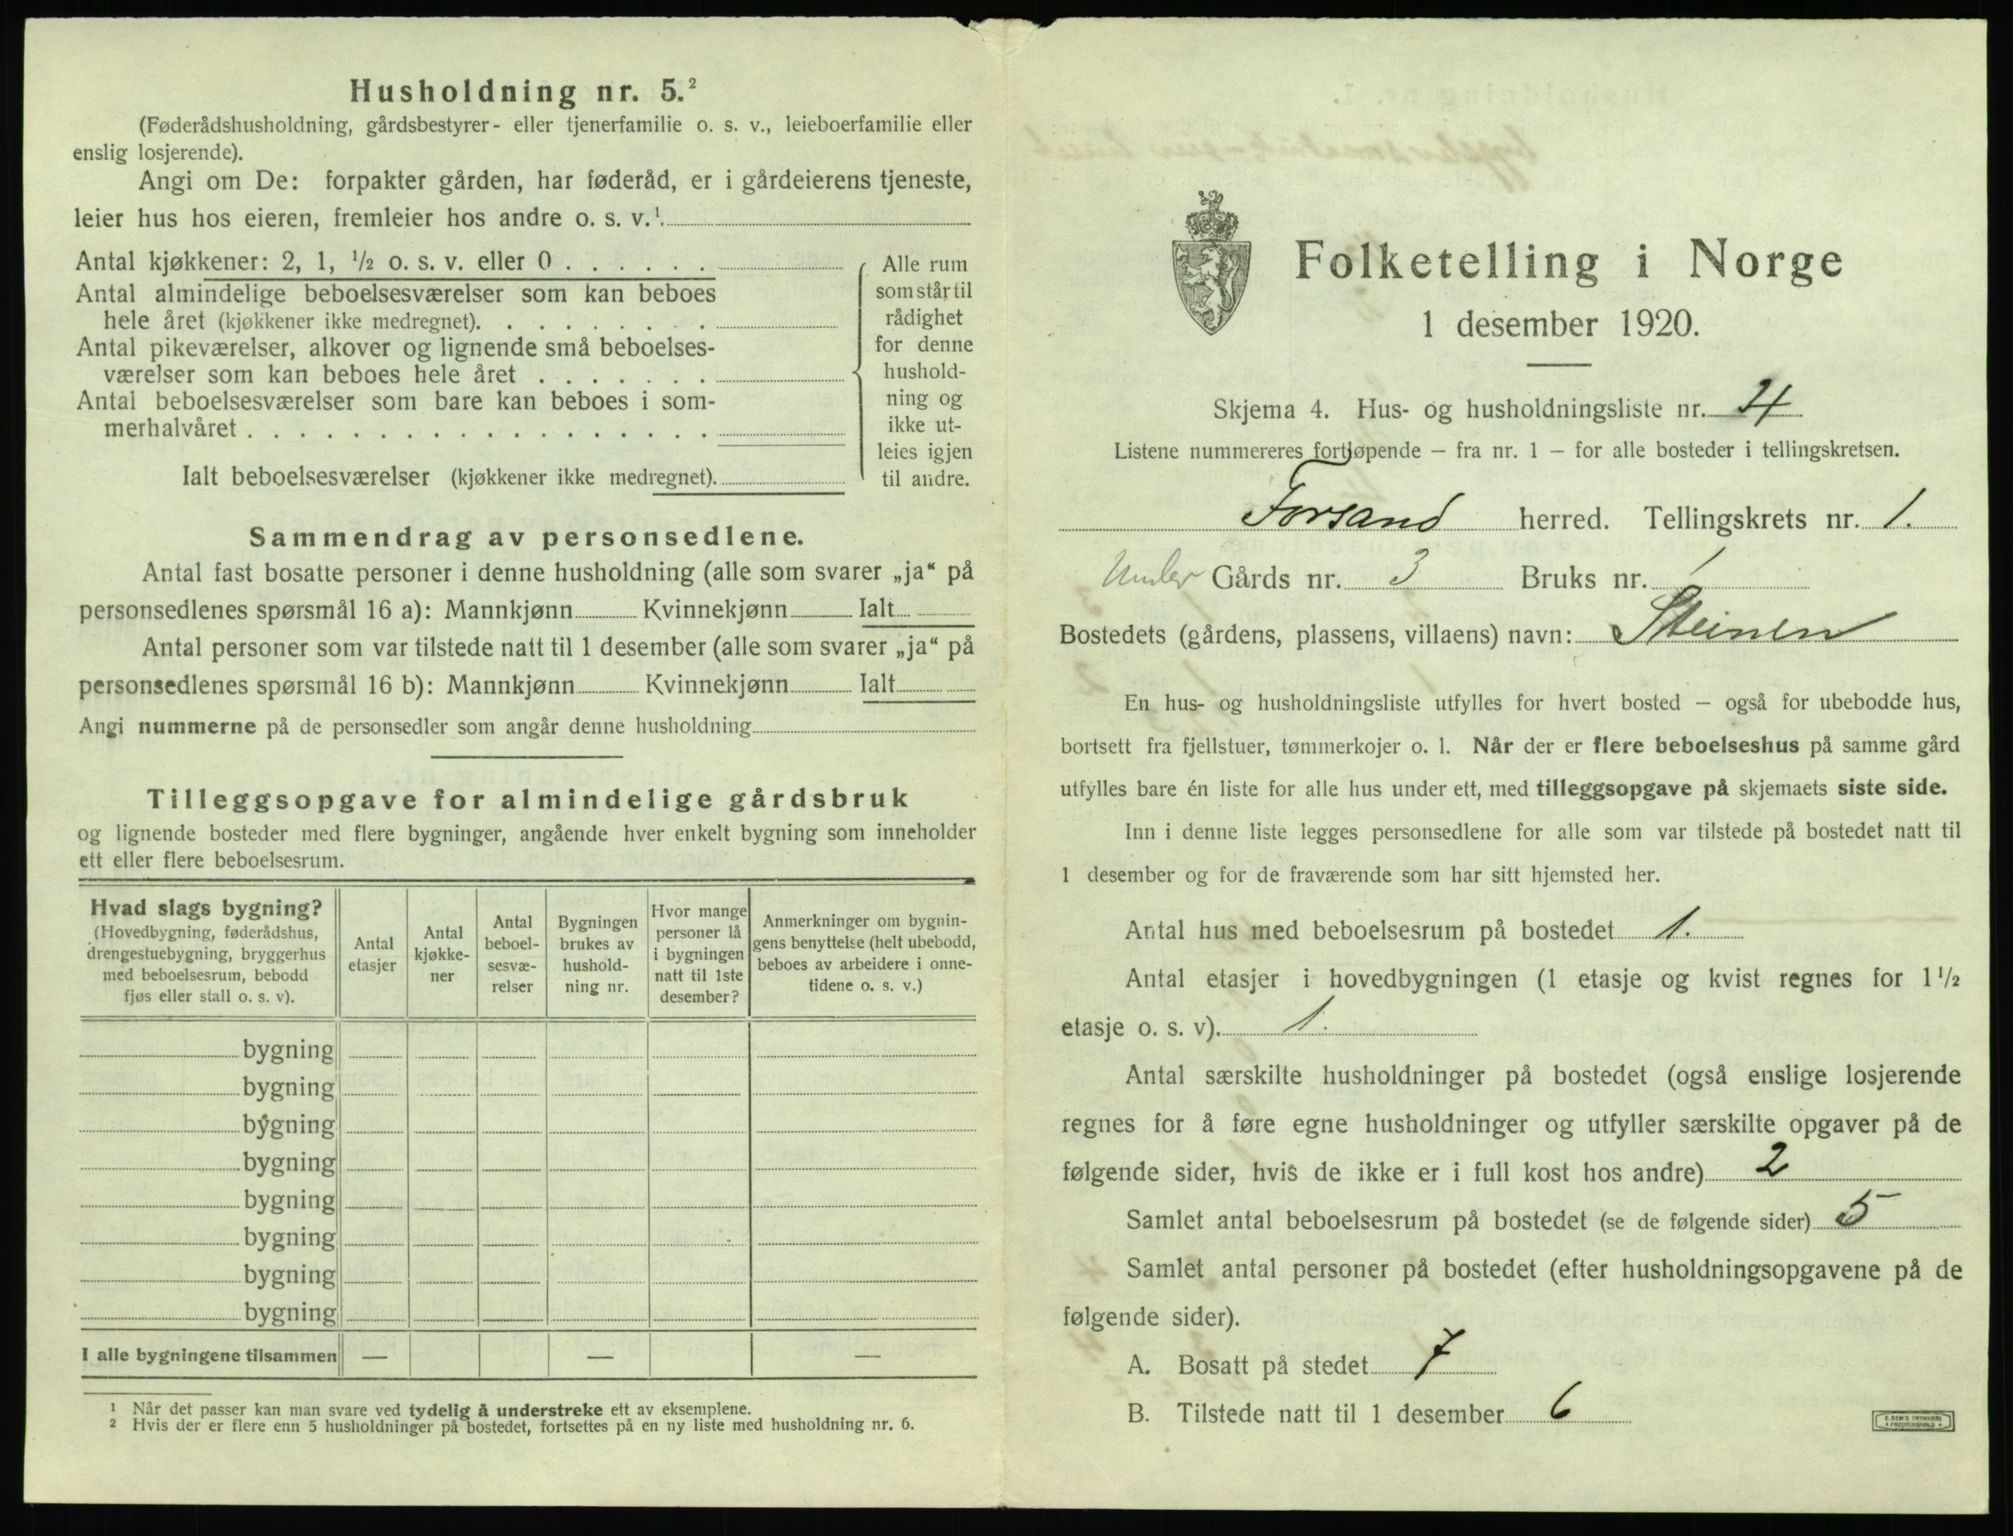 Husholdning nr. 5.²
(Føderådshusholdning, gårdsbestyrer- eller tjenerfamilie o. s. v., leieboerfamilie eller
enslig losjerende).
Angi om De: forpakter gården, har føderåd, er i gårdeierens tjeneste,
leier hus hos eieren, fremleier hos andre o. s. v.¹
Antal kjøkkener: 2, 1, ½ o. s. v. eller 0 . . . . . .
Antal almindelige beboelsesværelser som kan beboes
hele året (kjøkkener ikke medregnet). . . . . . . . .
Antal pikeværelser, alkover og lignende små beboelses-
værelser som kan beboes hele året . . . . . . .
Antal beboelsesværelser som bare kan beboes i som-
merhalvåret . . . . . . . . . . . . . . . . . .
Ialt beboelsesværelser (kjøkkener ikke medregnet).
Alle rum
som står til
rådighet
for denne
hushold-
ning og
ikke ut-
leies igjen
til andre.
Sammendrag av personsedlene.
Antal fast bosatte personer i denne husholdning (alle som svarer „ja“ på
personsedlenes spørsmål 16 a): Mannkjønn Kvinnekjønn Ialt
Antal personer som var tilstede natt til 1 desember (alle som svarer „ja“ på
personsedlenes spørsmål 16 b): Mannkjønn Kvinnekjønn Ialt
Angi nummerne på de personsedler som angår denne husholdning
Tilleggsopgave for almindelige gårdsbruk
og lignende bosteder med flere bygninger, angående hver enkelt bygning som inneholder
ett eller flere beboelsesrum.
Hvad slags bygning?
(Hovedbygning, føderådshus,
drengestuebygning, bryggerhus
med beboelsesrum, bebodd
fjøs eller stall o. s. v).
Antal
etasjer
Antal
kjøkke-
ner
Antal
beboel-
sesvæ-
relser
Bygningen
brukes av
hushold-
ning nr.
Hvor mange
personer lå
i bygningen
natt til 1ste
desember?
Anmerkninger om bygnin-
gens benyttelse (helt ubebodd,
beboes av arbeidere i onne-
tidene o. s. v.)
bygning
bygning
bygning
bygning
bygning
bygning
bygning
bygning
I alle bygningene tilsammen — — —
¹ Når det passer kan man svare ved tydelig å understreke ett av eksemplene.
² Hvis der er flere enn 5 husholdninger på bostedet, fortsettes på en ny liste med husholdning nr. 6.
Folketelling i Norge
1 desember 1920.
Skjema 4. Hus- og husholdningsliste nr. 24
Listene nummereres fortløpende – fra nr. 1 – for alle bosteder i tellingskretsen.
Forsand herred. Tellingskrets nr. 1.
Under Gårds nr. 3 Bruks nr. 1
Bostedets (gårdens, plassens, villaens) navn: Steinen
En hus- og husholdningsliste utfylles for hvert bosted – også for ubebodde hus,
bortsett fra fjellstuer, tømmerkojer o. l. Når der er flere beboelseshus på samme gård
utfylles bare én liste for alle hus under ett, med tilleggsopgave på skjemaets siste side.
Inn i denne liste legges personsedlene for alle som var tilstede på bostedet natt til
1 desember og for de fraværende som har sitt hjemsted her.
Antal hus med beboelsesrum på bostedet 1.
Antal etasjer i hovedbygningen (1 etasje og kvist regnes for 1½
etasje o. s. v). 1.
Antal særskilte husholdninger på bostedet (også enslige losjerende
regnes for å føre egne husholdninger og utfyller særskilte opgaver på de
følgende sider, hvis de ikke er i full kost hos andre) 2
Samlet antal beboelsesrum på bostedet (se de følgende sider) 5
Samlet antal personer på bostedet (efter husholdningsopgavene på de
følgende sider).
A. Bosatt på stedet 7
B. Tilstede natt til 1 desember 6
E. SEM'S TRYKKERI
FREDRIKSHALD